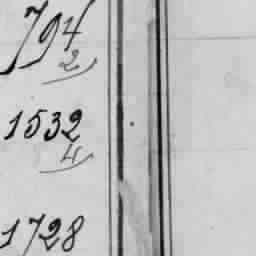 1794
2
1532
4
1728